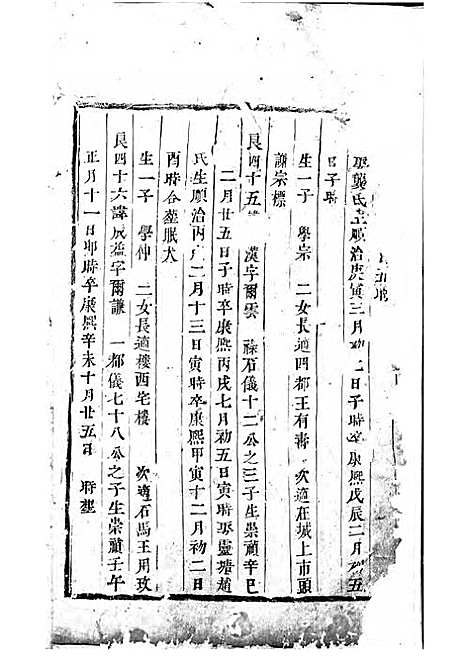 娶龔氏生順治庚寅三月初二日子時卒康熙戊辰二月初五
日子時
生一子 學宗 二女長適四都王有壽 次適在城上市頭
謝宗標
良四十五諱 漢字爾雲 祿石儀十二公之三子生崇禎辛巳
二月廿五日子時卒康熙丙戌七月初五日寅時娶靈塘趙
氏生順治丙 二月十三日寅時卒康熙甲寅十二月初二日
酉時合葬眠犬
生一子 學仲 二女長適樓西宅樓 次適石馬王用玫
良四十六諱 益字爾謙 一都儀七十八公之子生崇禎壬午
正月十一日卯時卒康熙辛未十月廿五日 時葬